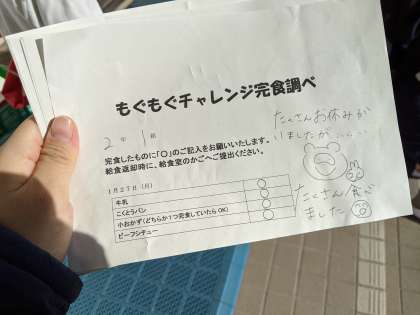 もぐもぐチャレンジ完食調べ
2年 1組
たくさんお休みが
いましたが、、、、
完食したものに「〇」のご記入をお願いいたします。
給食返却時に、給食室のかごへご提出ください。
1月27日（月）
牛乳 〇
こくとうパン 〇
小おかず（どちらか1つ完食していたらOK） 〇
ビーフシチュー 〇
たくさん食べ
ました